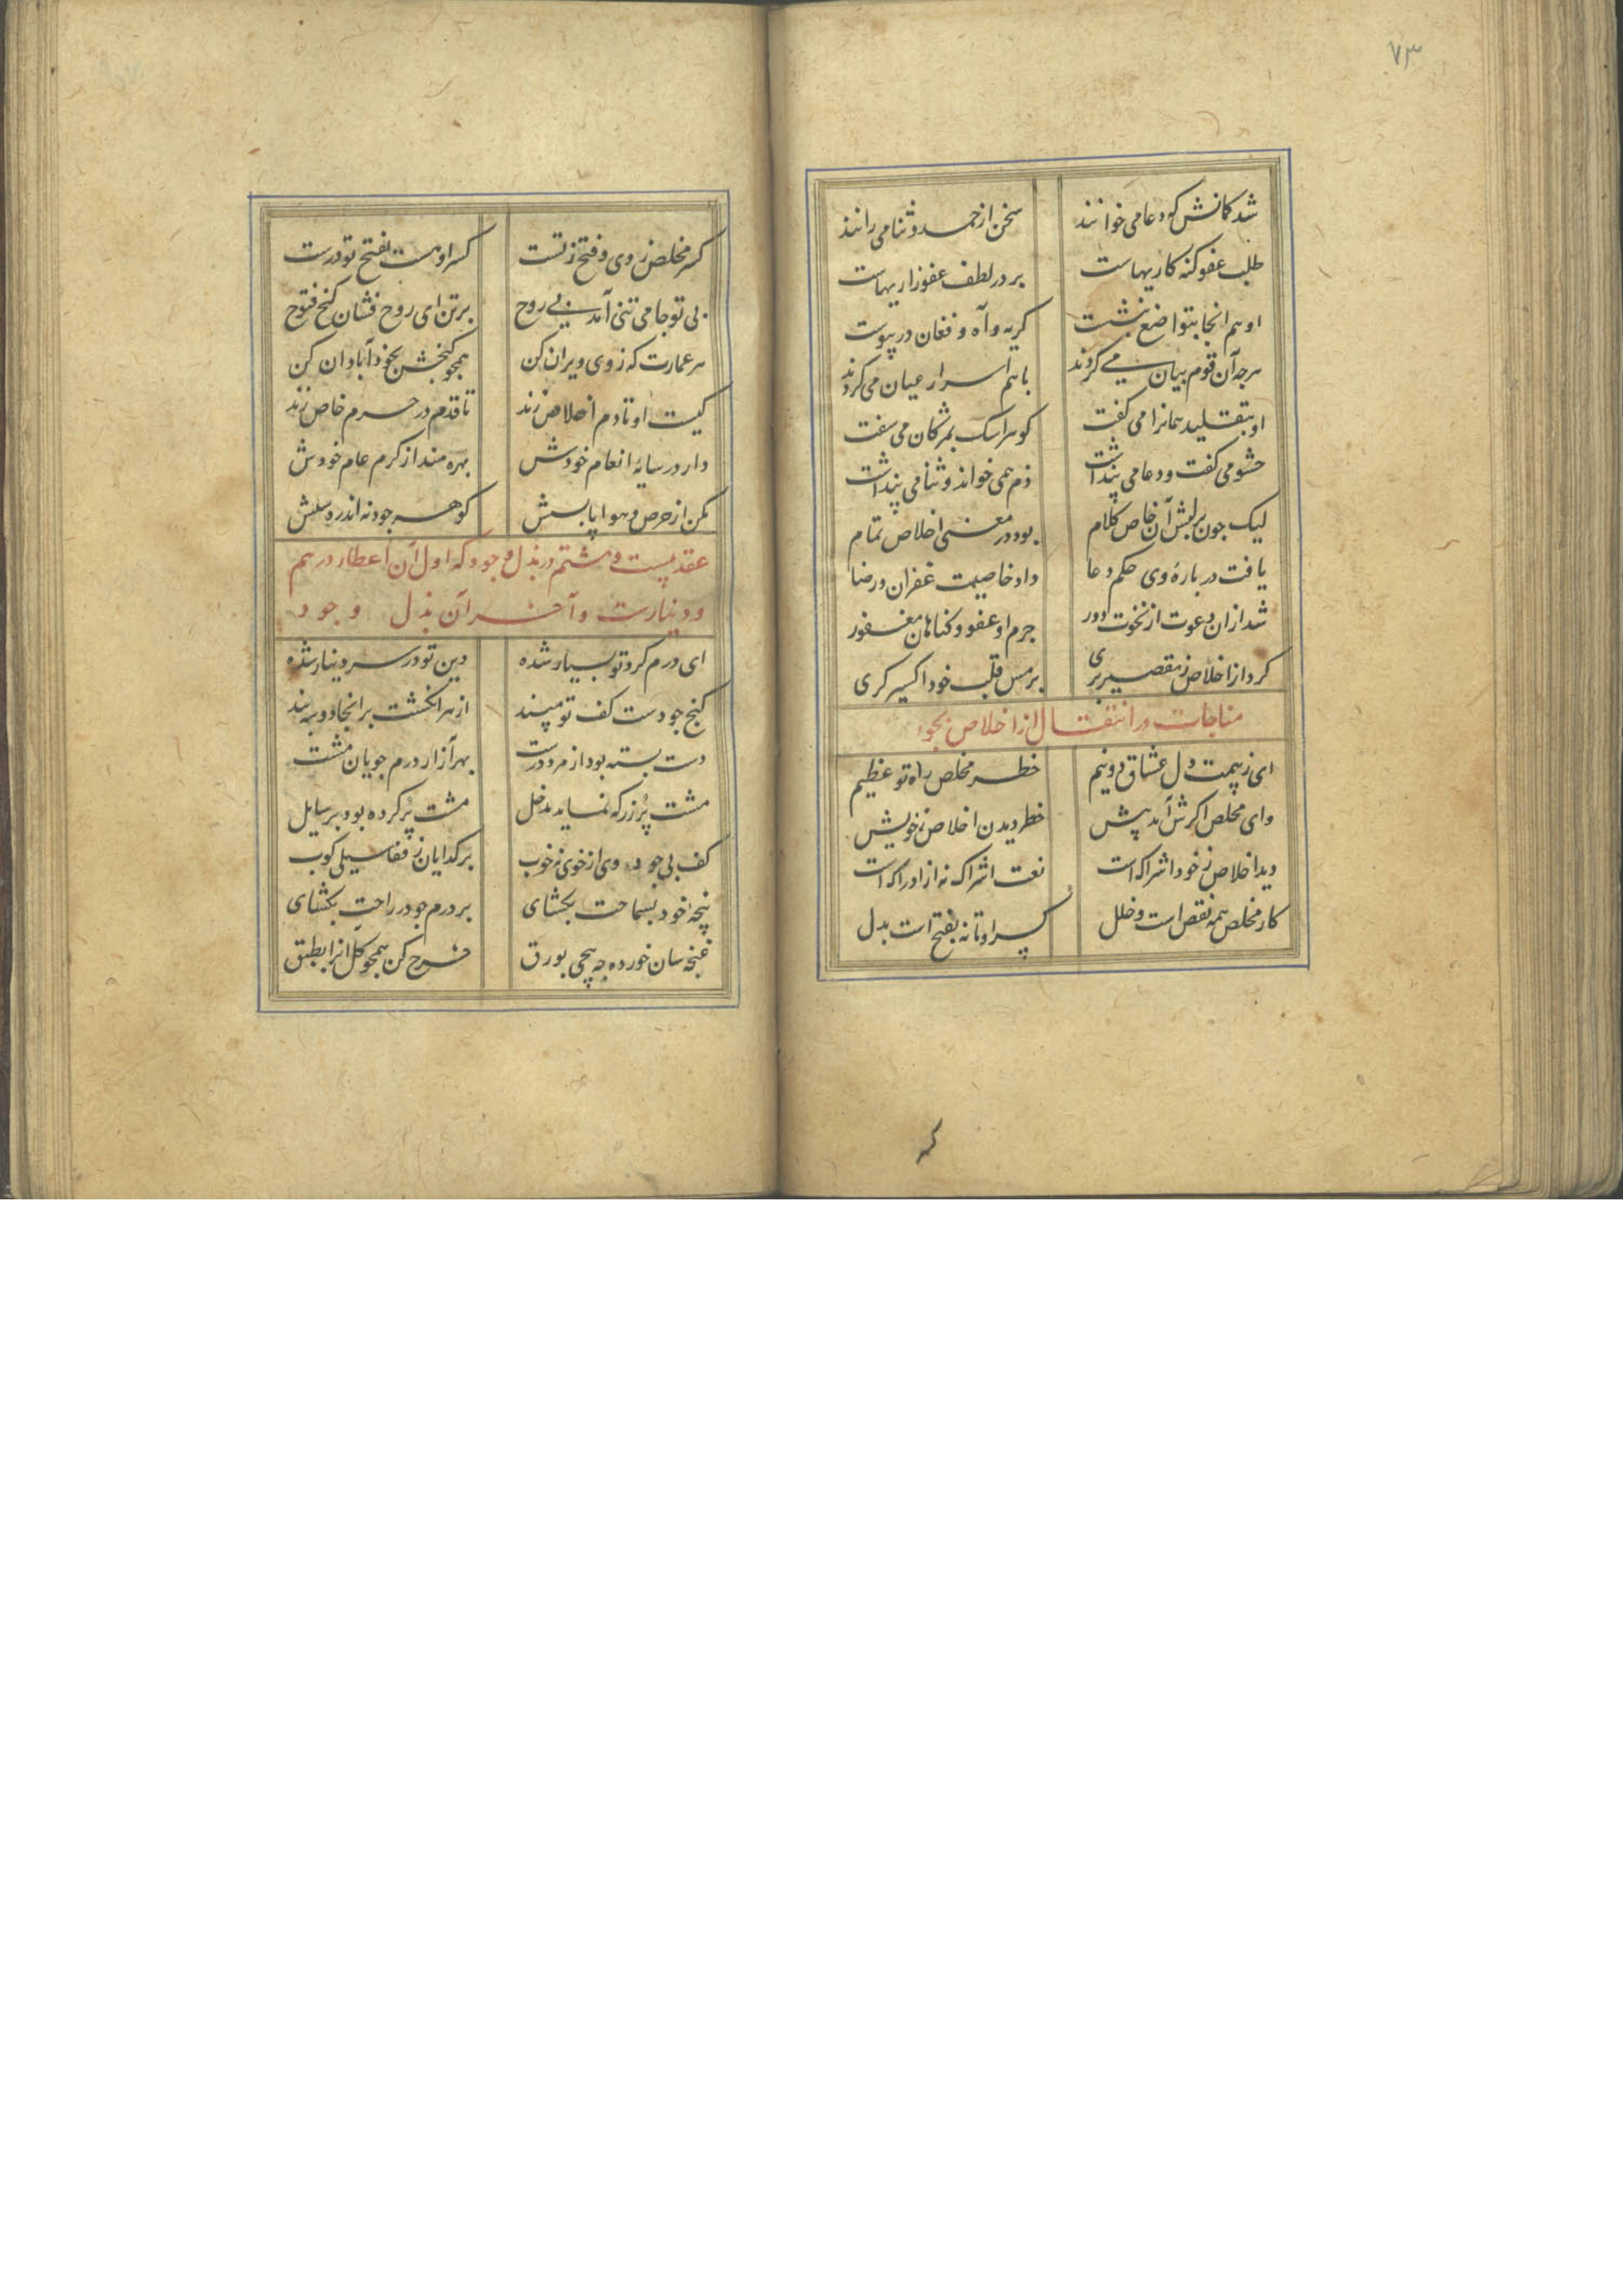 ۷۳
شد کمانش که دعا می خوانند سخن از حمد و ثنا می رانند
طلب عفو کنه کاریهاست بر در لطف عفو زاریهاست
او هم انجا بتواضع بنشست کریه و آه و فغان در پیوست
هرجه آن قوم بیان می کردند با هم اسرار عیان می کردند
او بتقلید همانرا می کفت کوهر اسک بمژکان می سفت
حشو می کفت و دعا می پنداشت ذم همی خواند و ثنا می پنداشت
لیک جون بر لبش آن خاص کلام بود در معنی اخلاص تمام
یافت در بارهٔ وی حکم دعا داد خاصیت غفران و رضا
شد ازان دعوت از نخوت دور جرم او عفو و کناهان مغفور
کرد از اخلاص ز تقصیر بری بر مس قلب خود اکسیر کری
مناجات در انتقال از اخلاص بجود
ای ز بیمت دل عشاق دو نیم خطر مخلص راه تو عظیم
وای مخلص اکرش آمد پیش خطر دیدن اخلاص ز خویش
دید اخلاص ز خود اشراک است نعت اشراک نه از ادراک است
کار مخلص همه نقص است و خلل کسر او تا نه بفتح است بدل
کسر مخلص ز وی و فتح ز تست کسر او هست بفتح تو درست
بی تو جامی تنی آمد بی روح برتن ای روح فشان کنج فتوح
هر عمارت که ز وی ویران کن همجو کنجش بخود آبادان کن
کیست او تا دم اخلاص زند تا قدم در حرم خاص زند
دار در سایهٔ انعام خودش بهره مند از کرم عام خودش
مکن از حرص و هوا پا بستش کوهر جود نه اندر دستش
عقد بیست و هشتم در بذل و جود که اول آن اعطاء درهم
و دینارست و آخر آن بذل وجود
ای درم کرد تو بسیار شده دین تو در سر دینار شده
کنج جودست کف تو مپسند از هر انکشت بر انجا دو سه بند
دست بسته بود از مرد درشت بهر آزار درم جویان مشت
مشت پر زر که نماید مدخل مشت پر کرده بود بر سایل
کف بی جود وی از خوی نه خوب بر کدایان ز قفا سیلی کوب
پنجهٔ خود بسماحت بکشای بر درم جو در راحت بکشای
غنجه سان خورده جه پیجی بورق خرج کن همجو کل آنرا بطبق
که